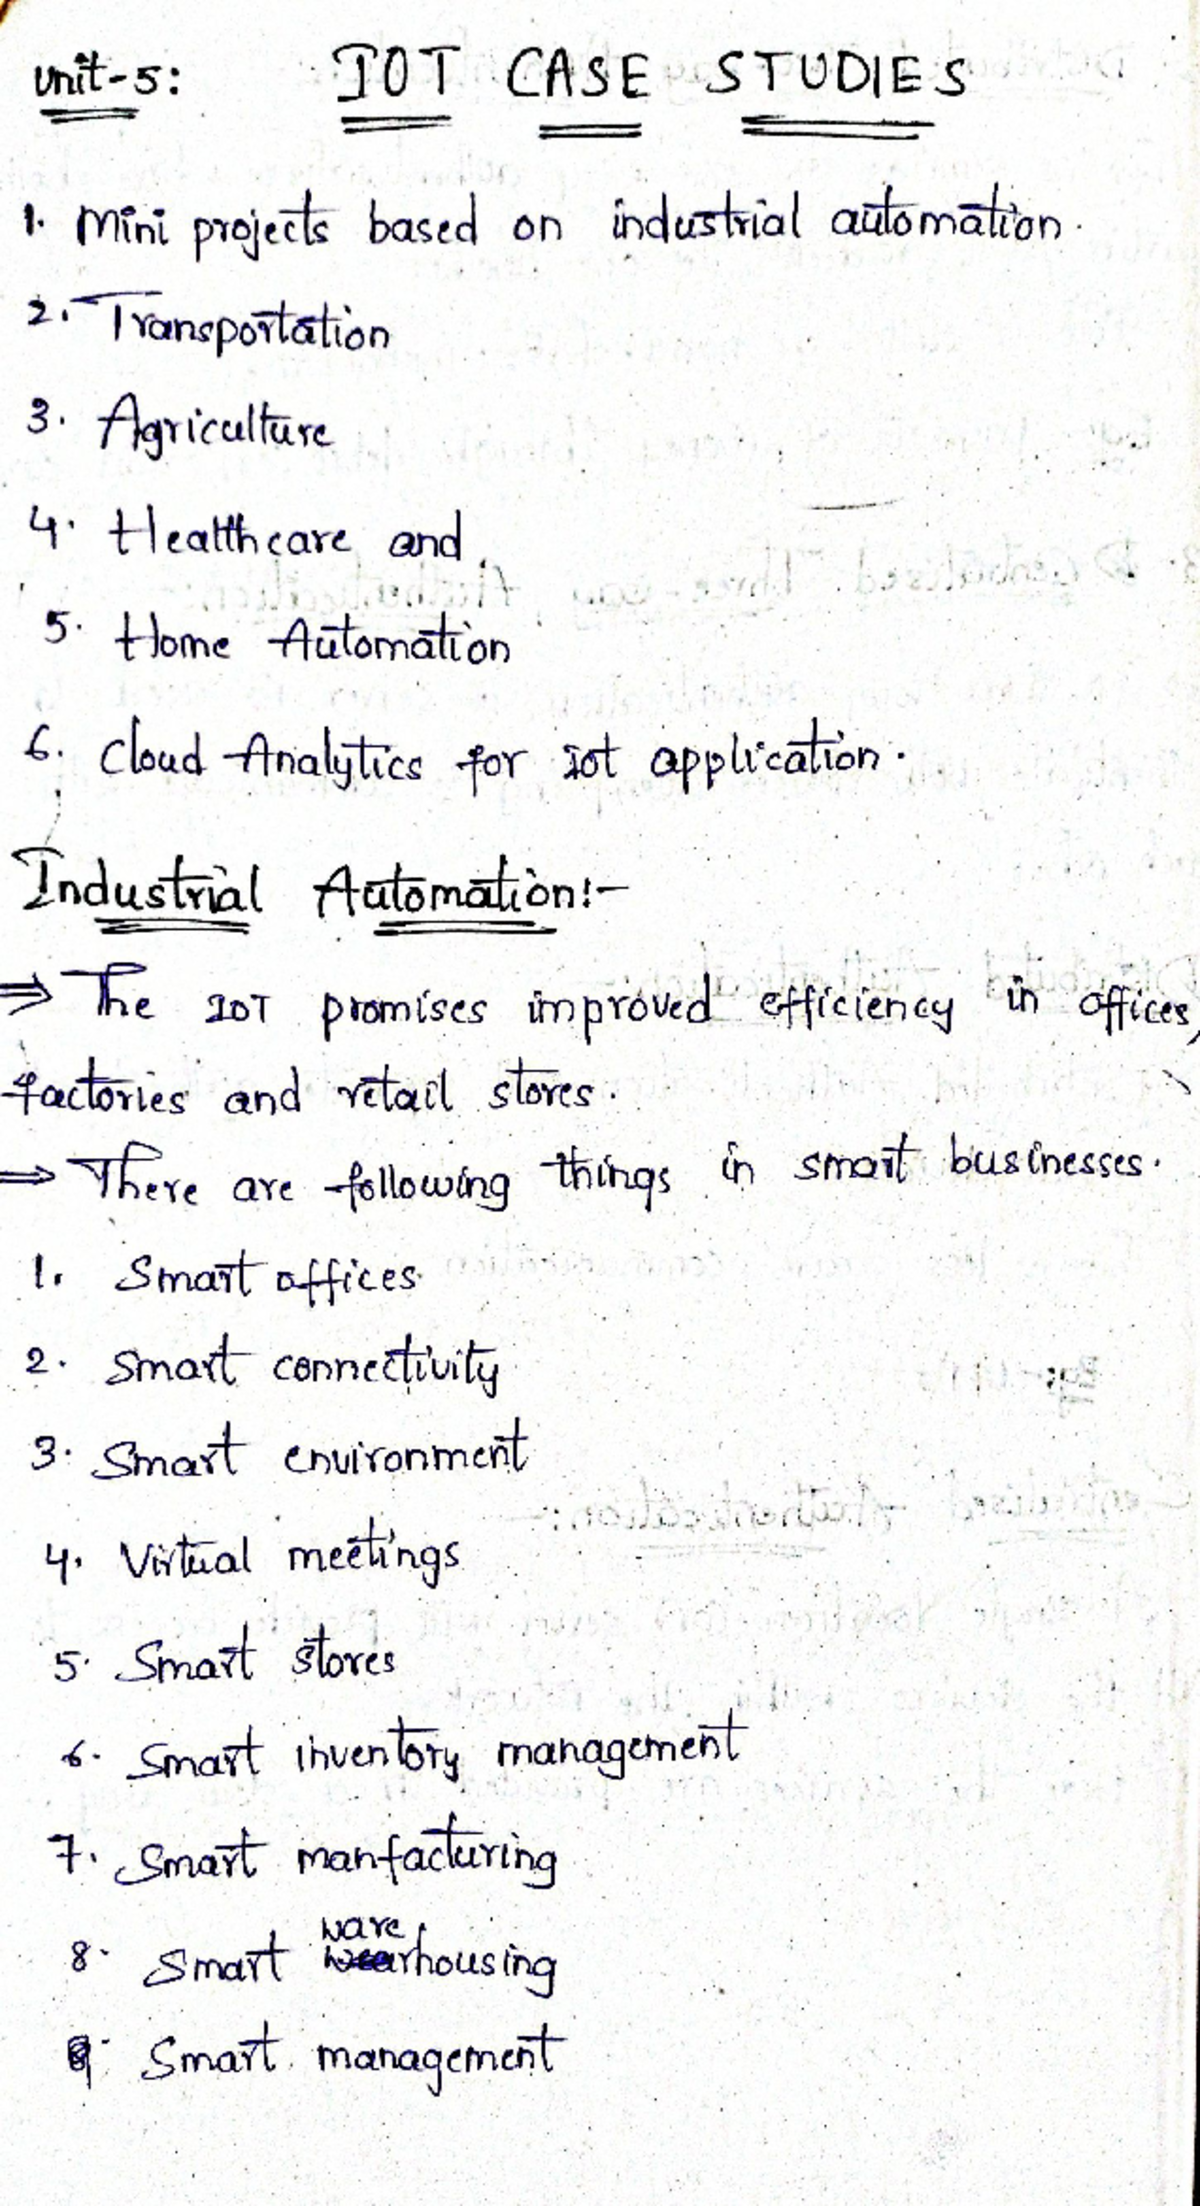 Unit-5: IOT CASE STUDIES
1. Mini projects based on industrial automation.
2. Transportation
3. Agriculture
4. Healthcare and
5. Home Automation
6. Cloud Analytics for iot application.
Industrial Automation:-
⇒ The IOT promises improved efficiency in offices,
factories and retail stores.
⇒ There are following things in smart businesses.
1. Smart offices
2. Smart connectivity
3. Smart environment
4. Virtual meetings
5. Smart stores
6. Smart inventory management
7. Smart manfacturing
8. Smart warehousing
9. Smart management